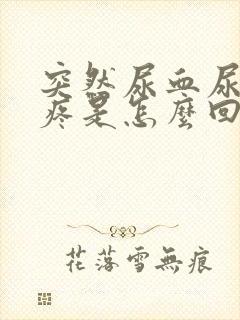 突然尿血尿
疼是怎麼回
花落雪無痕